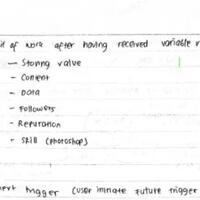 of work after having received variable r
— Storing value
- Content
- Data
- Followers
- Reputation
- Skill (photoshop)
trigger (user initiate future trigger